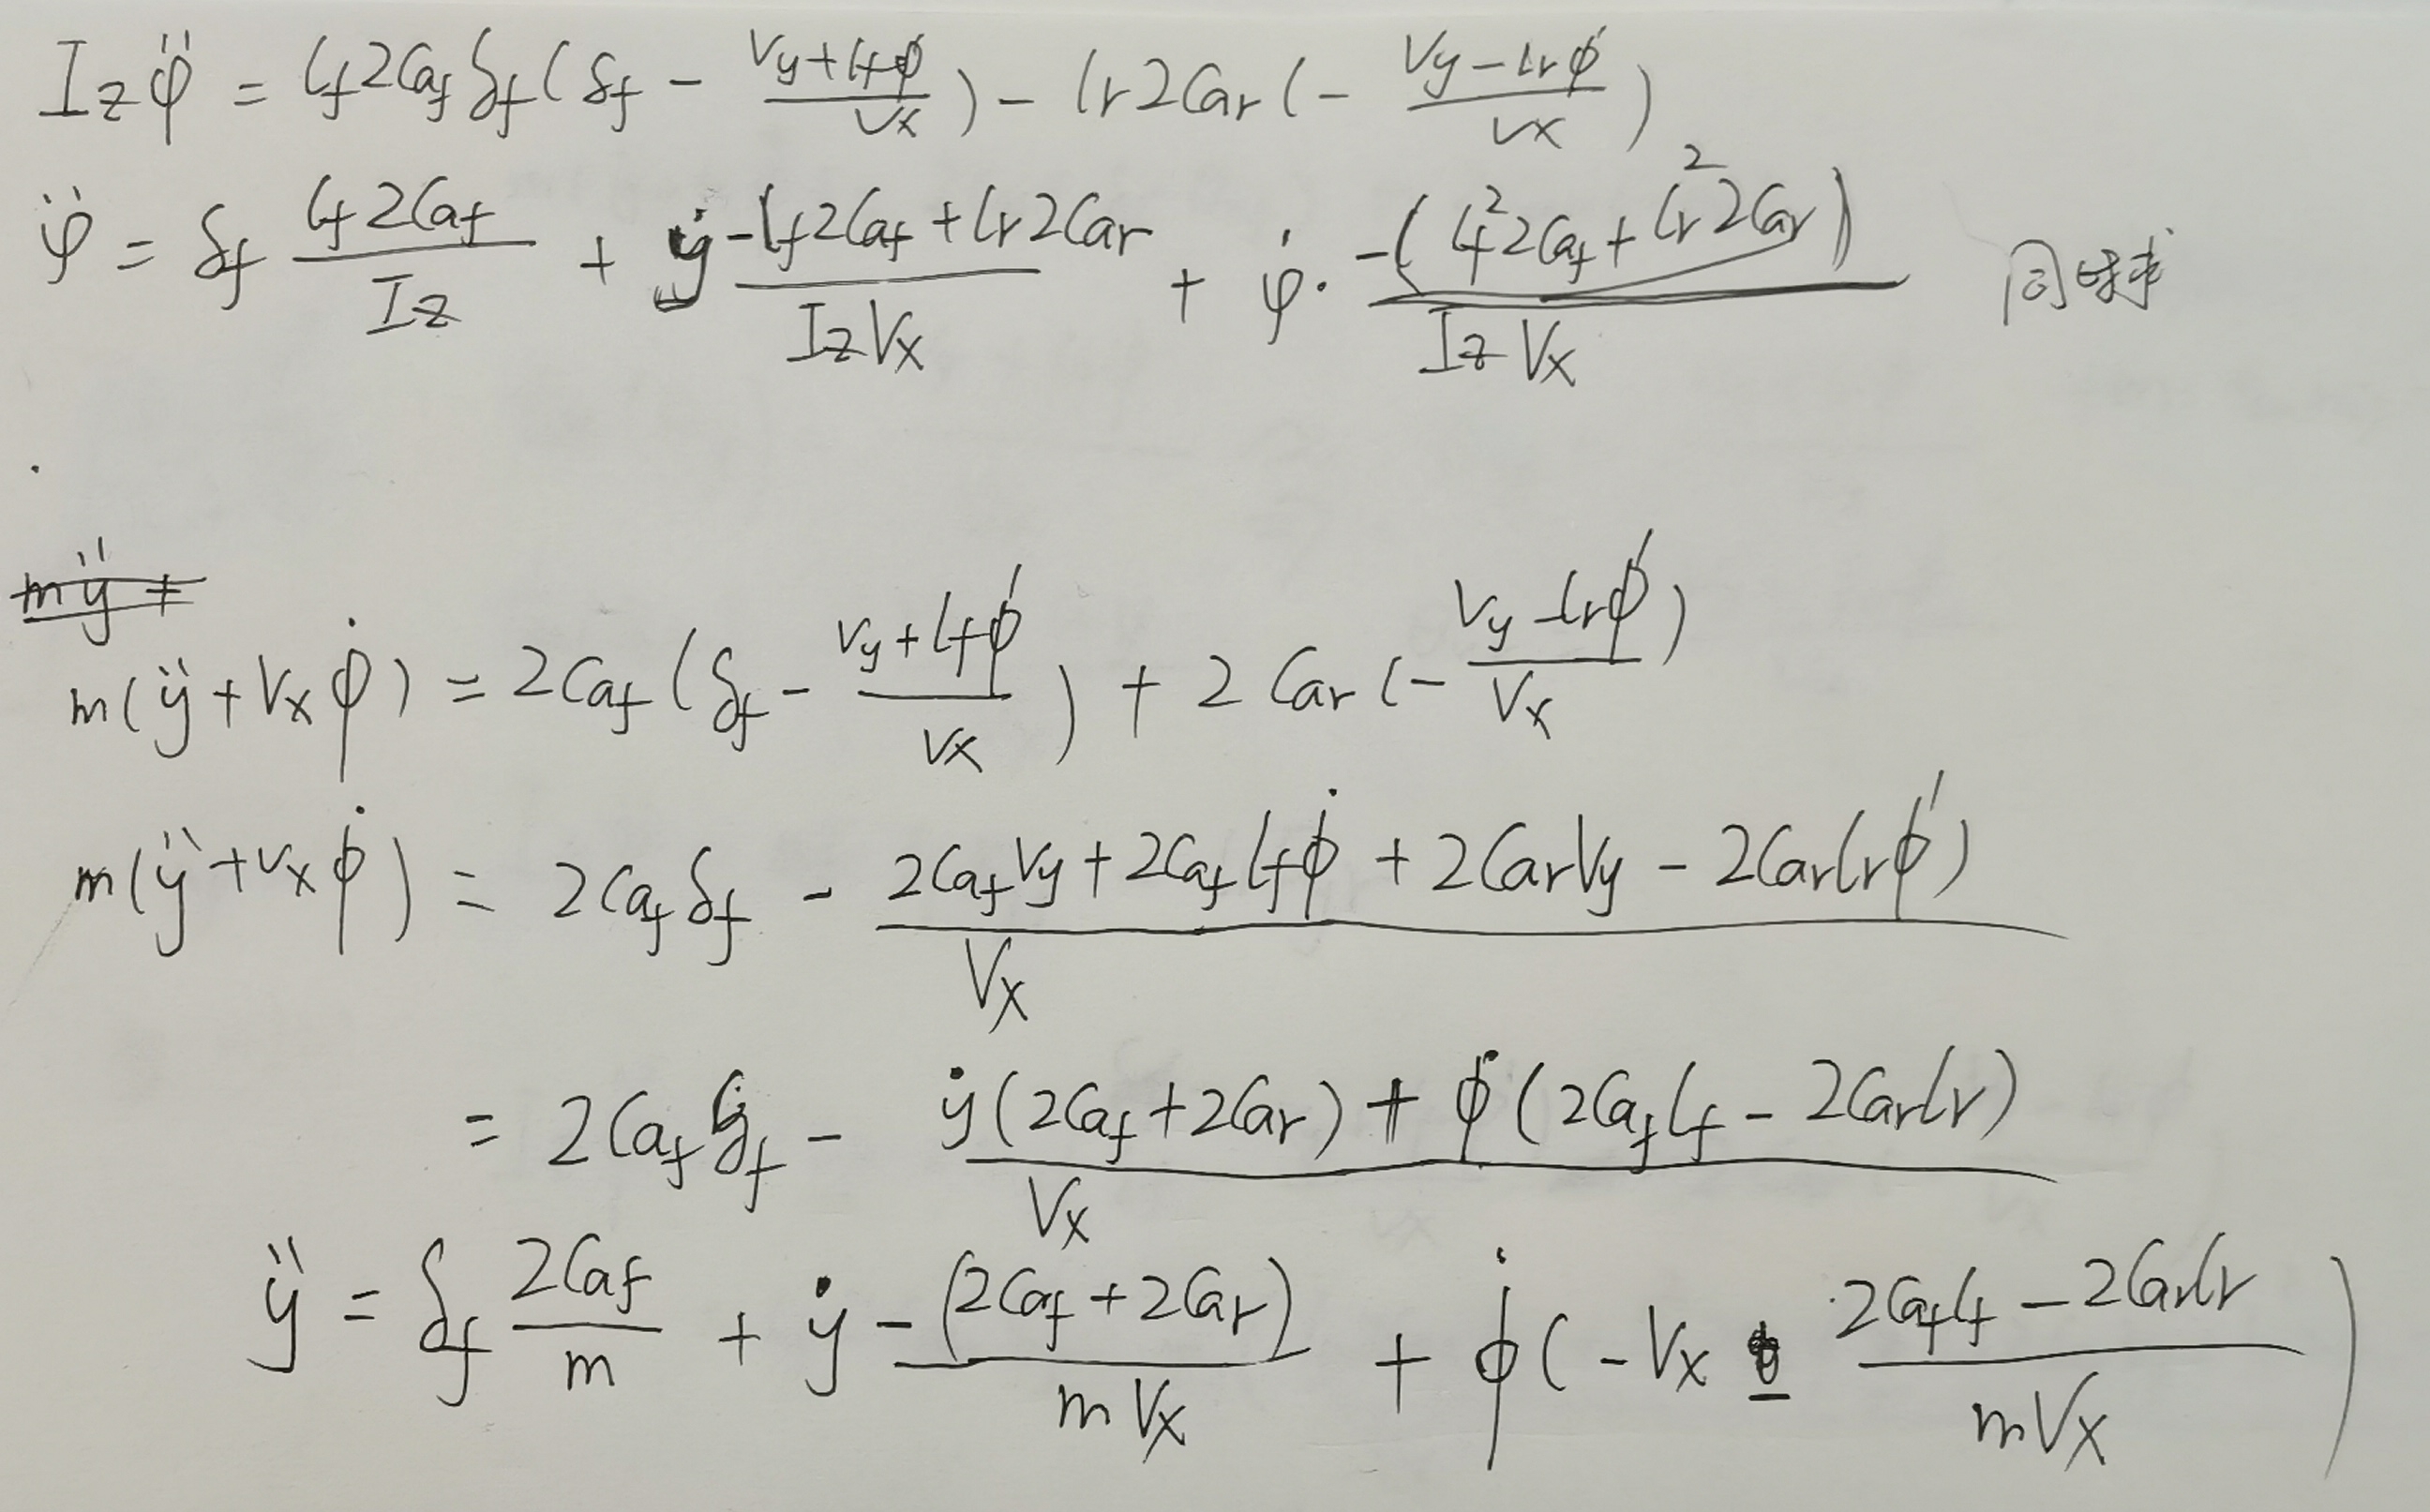 I_z φ̈ = l_f 2C_af δ_f (δ_f − (V_y + l_f φ̇)/V_x) − l_r 2C_ar (− (V_y − l_r φ̇)/V_x)
φ̈ = δ_f (l_f 2C_af)/I_z + ẏ (−l_f 2C_af + l_r 2C_ar)/(I_z V_x) + φ̇ · −(l_f² 2C_af + l_r² 2C_ar)/(I_z V_x) 同
mÿ =
m(ÿ + V_x φ̇) = 2C_af (δ_f − (V_y + l_f φ̇)/V_x) + 2C_ar (− (V_y − l_r φ̇)/V_x)
m(ÿ + V_x φ̇) = 2C_af δ_f − (2C_af V_y + 2C_af l_f φ̇ + 2C_ar V_y − 2C_ar l_r φ̇)/V_x
= 2C_af δ_f − (ẏ(2C_af + 2C_ar) + φ̇(2C_af l_f − 2C_ar l_r))/V_x
ÿ = δ_f 2C_af/m + ẏ −(2C_af + 2C_ar)/(m V_x) + φ̇(−V_x − (2C_af l_f − 2C_ar l_r)/(m V_x))